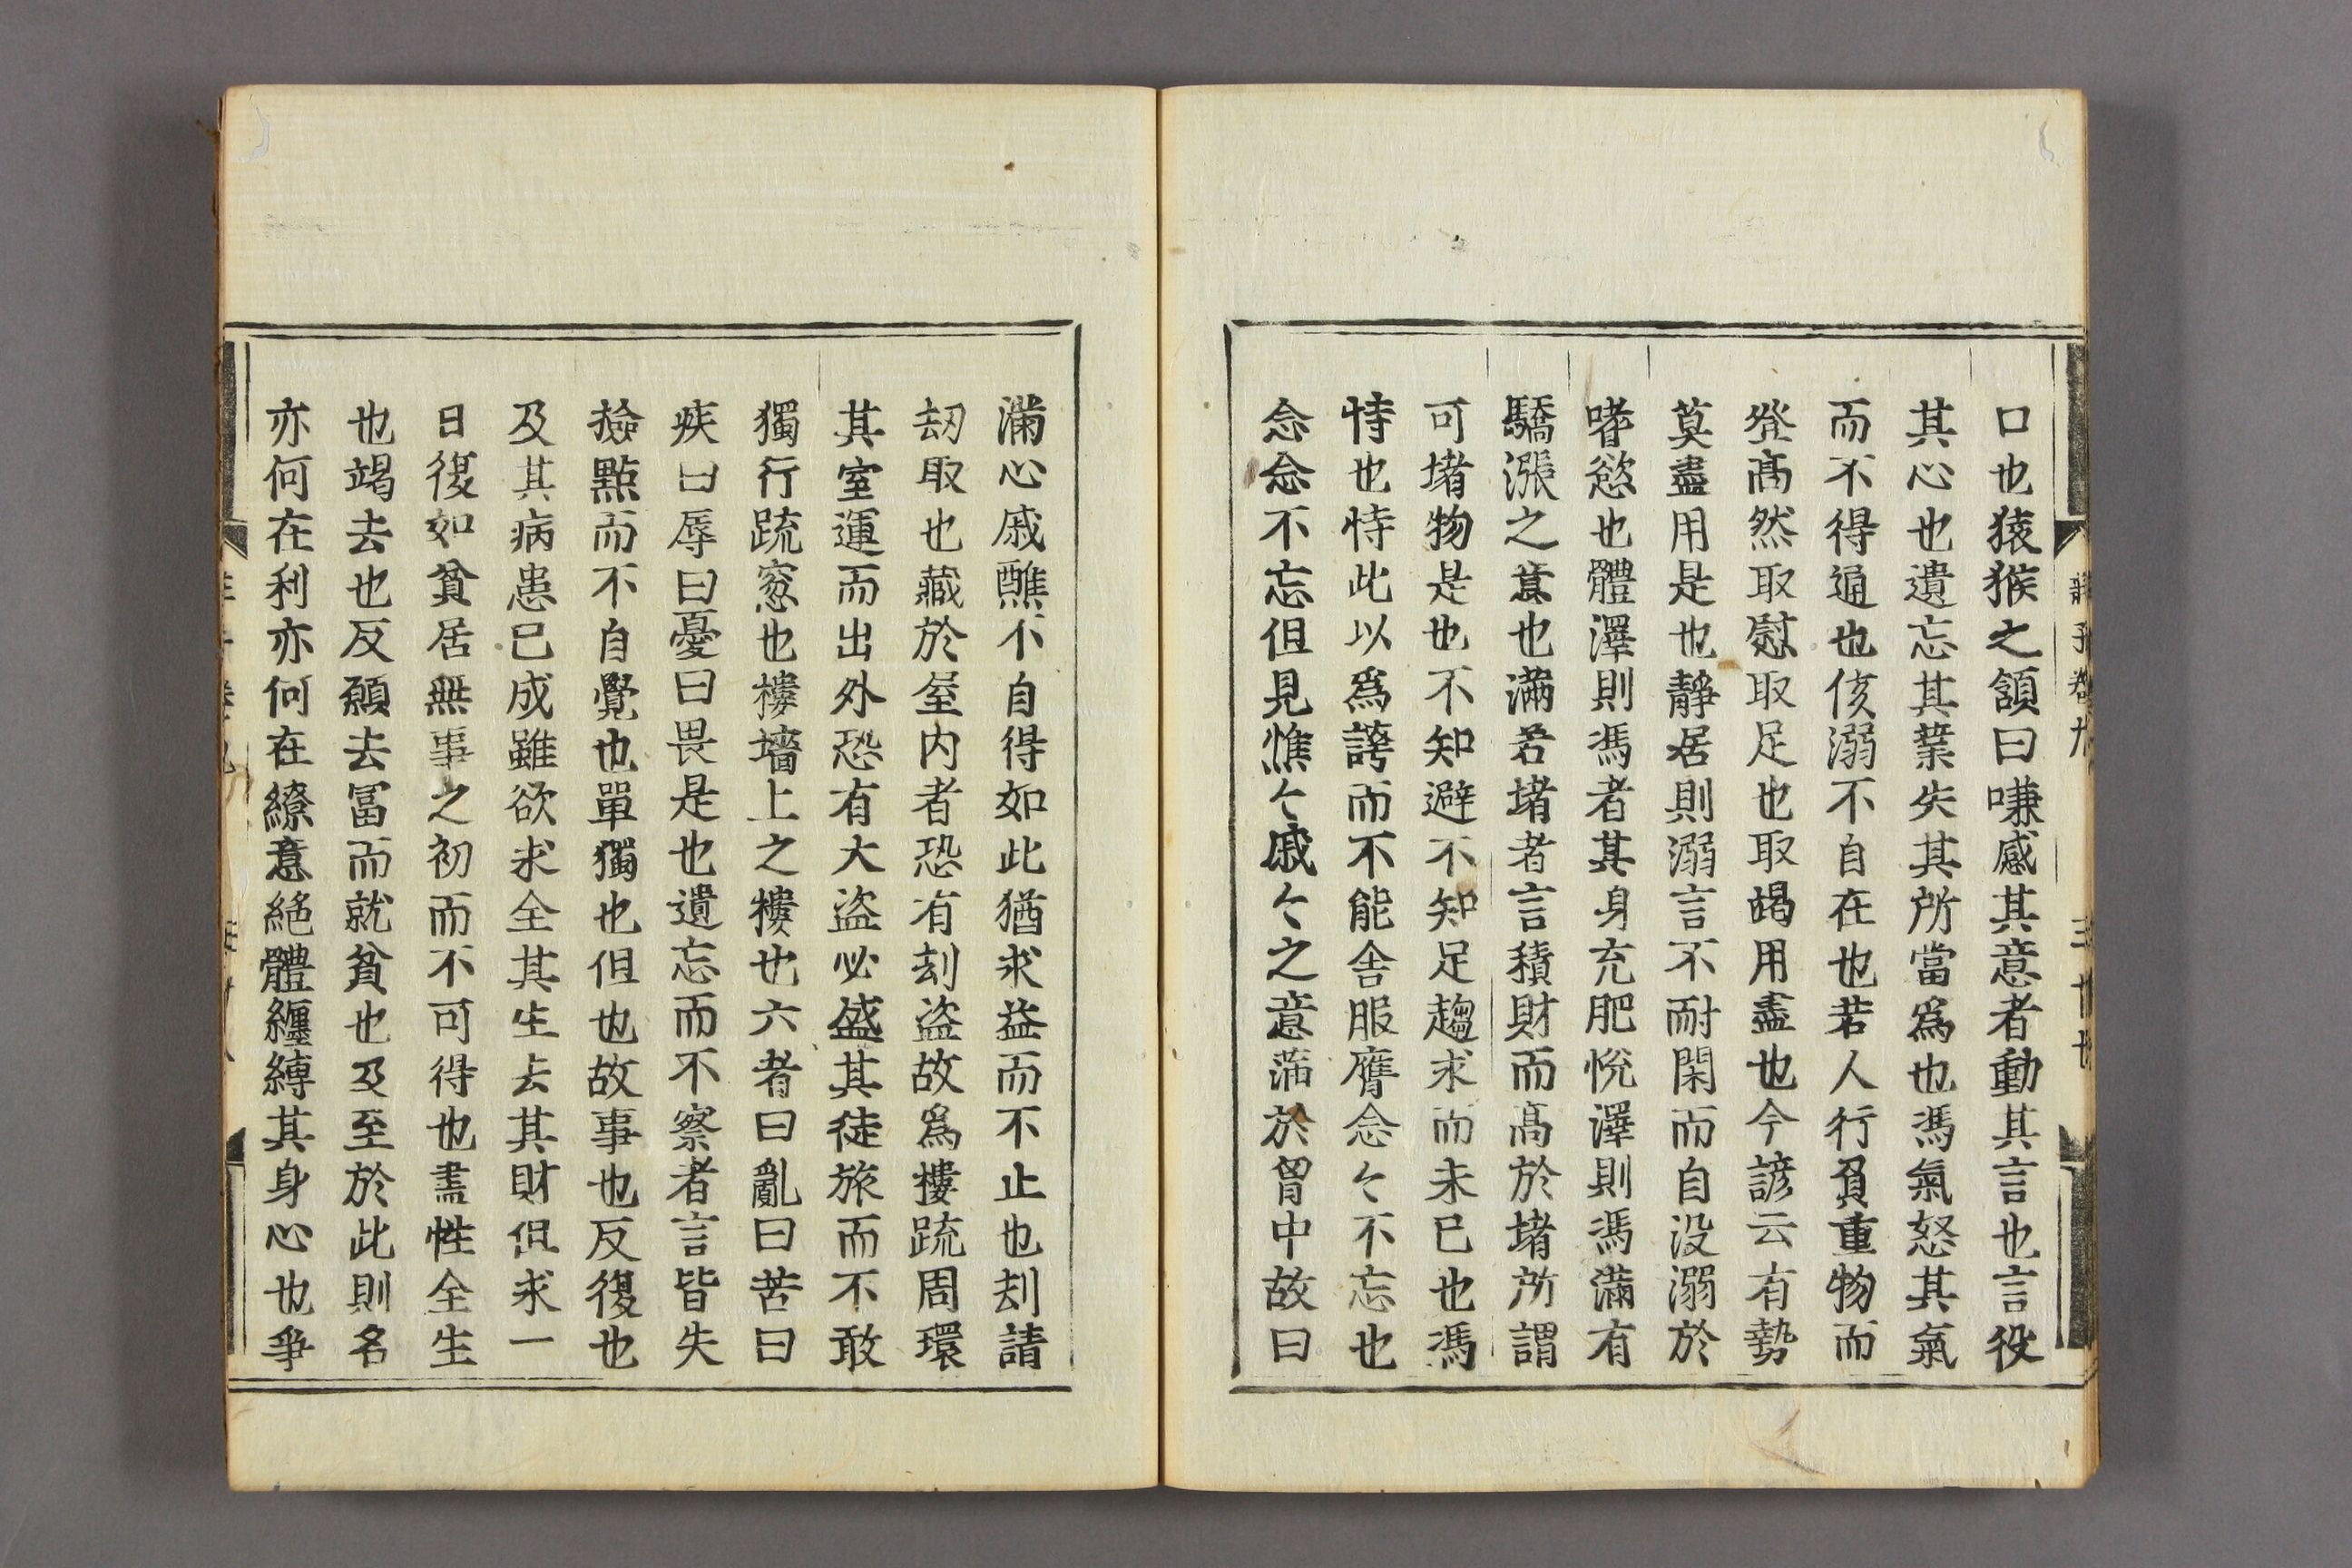 口也猿猴之頷曰嗛感其意者動其言也言役
其心也遺忘其業失其所當為也馮氣怒其氣
而不得通也侅溺不自在也若人行負重物而
登髙然取慰取足也取竭用盡也今諺云有勢
莫盡用是也靜居則溺言不耐閑而自没溺於
嗜慾也體澤則馮者其身充肥悅澤則馮滿有
驕漲之意也滿若堵者言積財而髙於堵所謂
可堵物是也不知避不知足趨求而未已也馮
恃也恃此以為誇而不能舎服膺念々不忘也
念念不忘但見憔々戚々之意滿於胷中故曰
滿心戚醮不自得如此猶求益而不止也刦請
刼取也藏於屋内者恐有刦盗故為樓疏周環
其室運而出外恐有大盗必盛其徒旅而不敢
獨行疏窓也樓墻上之樓也六者曰亂曰苦曰
疾曰辱曰憂曰畏是也遺忘而不察者言皆失
撿點而不自覺也單獨也但也故事也反復也
及其病患已成雖欲求全其生去其財但求一
日復如貧居無事之初而不可得也盡性全生
也竭去也反願去冨而就貧也及至於此則名
亦何在利亦何在繚意絕體纏縛其身心也爭